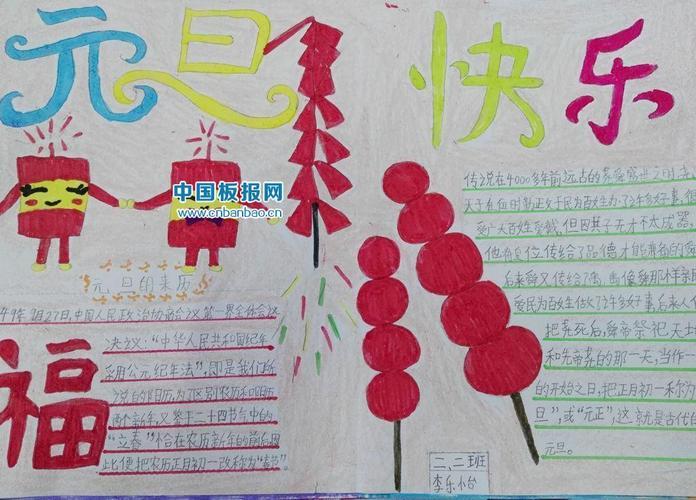 元旦
快乐
中国板报网
www.cnbanbao.cn
元旦的来历
月27日,中国人民政治协商会议第一届全体会议
决议:“中华人民共和国纪年
采用公元纪年法”,即是我们所
说的阳历,为了区别农历和阳历
两个新年,又鉴于二十四节气中的
“立春”恰在农历新年的前后,因
此便把农历正月初一改称为“春节”。
福
传说在4000多年前远古的尧舜盛世之时,尧
天子在位时勤政于民为百姓办了许多好事,很
受广大百姓爱戴,但因其子无才不太成器,
他将皇位传给了品德才能兼备的
后来舜又传给了禹,禹像舜那样
爱民为百姓做了许多好事,后来人
把尧死后,舜帝祭祀天
和先帝尧的那一天,当作
的开始之日,把正月初一称为
旦”,或“元正”,这就是古代的
元旦。
二、二班
李乐怡